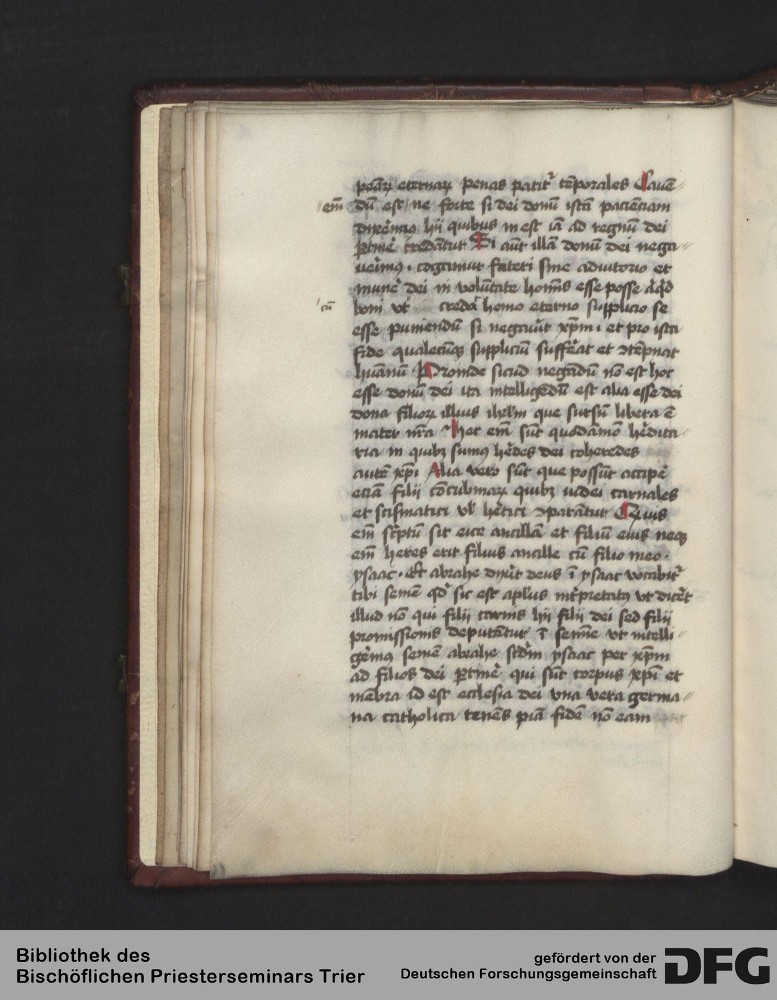 penarū eternarū penas patit᷑ tēporales Cauē
em̄ dū est ne forte si dei donū istā pacienciam
dixerimꝰ hii quibus inest iā ad regnū dei
ꝑtinē credātur Si aūt illā donū dei nega
uerimꝰ cogimur fateri sine adiutorio et
munē dei in volūtate hominis esse posse aliqͥd
cū boni vt credat homo eterno supplicio se
esse puniendū si negauūt xp̄m et pro ista
fide qualecūqꝫ suppliciū sufferat et ꝯtēpnat
humanū Proinde sicud negādū nō est hoc
esse donū dei ita intelligēdū est alia esse dei
dona filiorꝫ illius ihrlm̄ que sursū libera ē
mater nr̄a Hec em̄ sūt quodāmo hēdita
ria in quibꝫ sumꝰ hēdes dei coheredes
autē xp̄i Alia vero sūt que possūt accipē
eciā filii cōcubinarꝫ quibꝫ iudei carnales
et scismatici vl̄ hētici ꝯparātur Quis
em̄ sc̄ptū sit eice ancillā et filiū eius neqꝫ
em̄ heres erit filius ancille cū filio meo
ysaac Et abrahe dixit deus ī ysaac vocabit᷑
tibi semē qd̄ sic est apl̓us int̓pretatꝰ vt dicēt
illud nō qui filii carnis hii filii dei sed filii
promissionis deputātur ī semīe vt intelli
gēmꝰ semē abrahe scdm̄ ysaac per xp̄m
ad filios dei ꝑtinē qui sūt corpus xp̄i et
mēbra id est ecclesia dei vna vera germa
na catholica tenēs piā fidē nō eam
Bibliothek des
Bischöflichen Priesterseminars Trier
gefördert von der
Deutschen Forschungsgemeinschaft
DFG